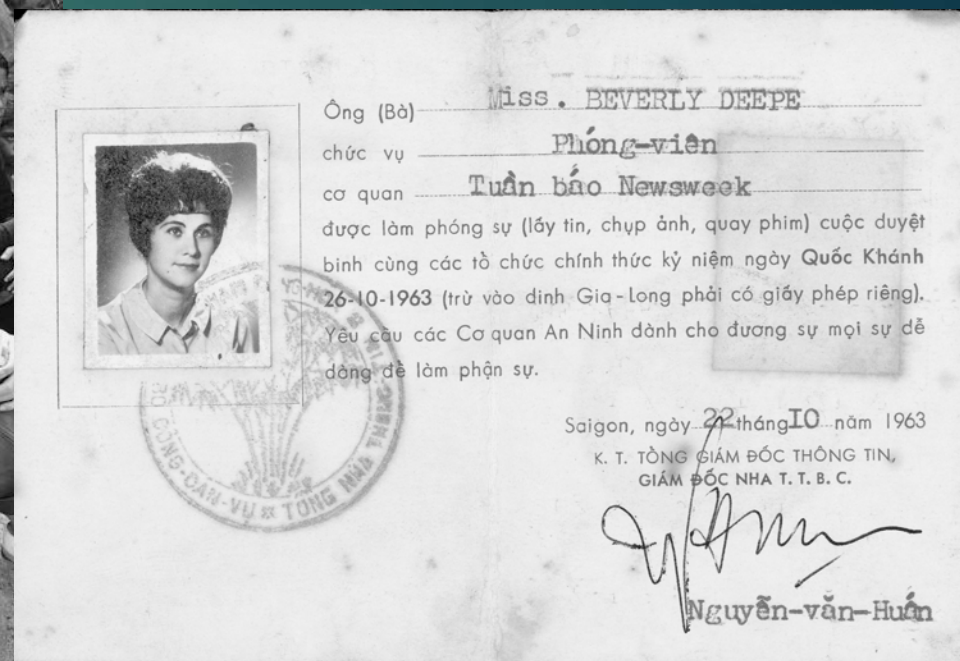 Ông (Bà) Miss. BEVERLY DEEPE
chức vụ Phóng-viên
cơ quan Tuần báo Newsweek
được làm phóng sự (lấy tin, chụp ảnh, quay phim) cuộc duyệt
binh cùng các tổ chức chính thức kỷ niệm ngày Quốc Khánh
26-10-1963 (trừ vào dinh Gia-Long phải có giấy phép riêng).
Yêu cầu các Cơ quan An Ninh dành cho đương sự mọi sự dễ
dàng để làm phận sự.
Saigon, ngày 22 tháng IO năm 1963
K. T. TỔNG GIÁM ĐỐC THÔNG TIN,
GIÁM ĐỐC NHA T. T. B. C.
Nguyễn-văn-Huấn
CÔNG-DÂN-VỤ TỔNG NHA THÔNG